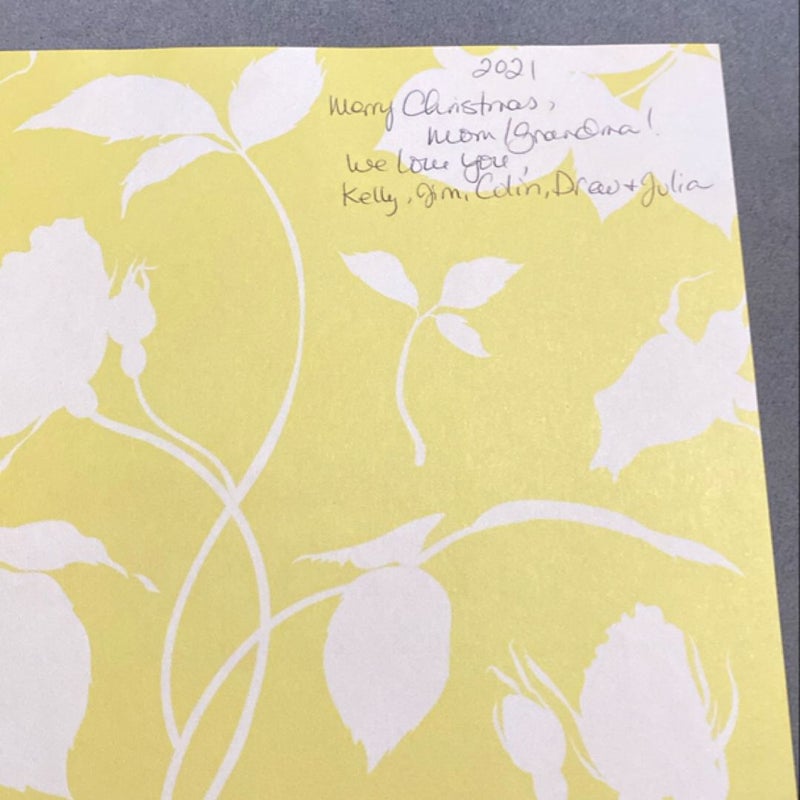 2021
Merry Christmas,
Mom/Grandma!
We love you,
Kelly, Jim, Colin, Drew + Julia